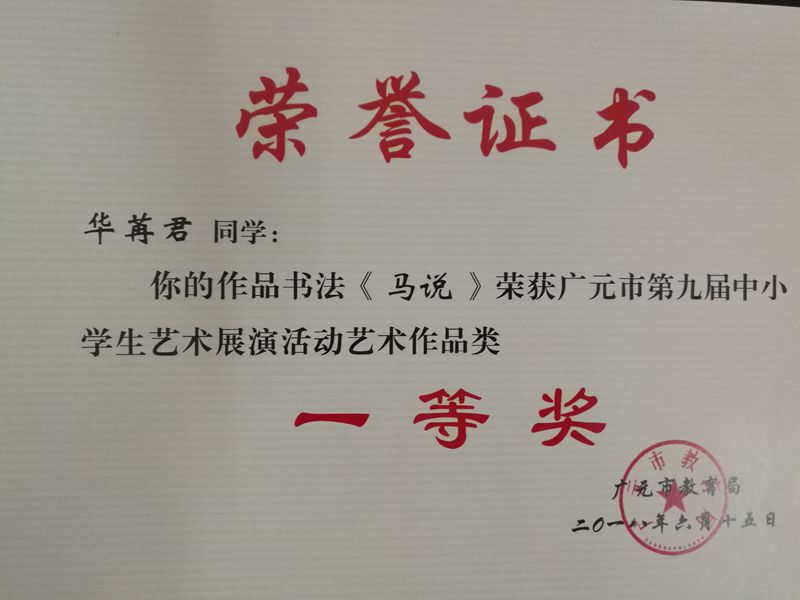 荣誉证书
华苒君 同学：
你的作品书法《 马说 》荣获广元市第九届中小
学生艺术展演活动艺术作品类
一等奖
广元市教育局
二〇一八年六月十五日